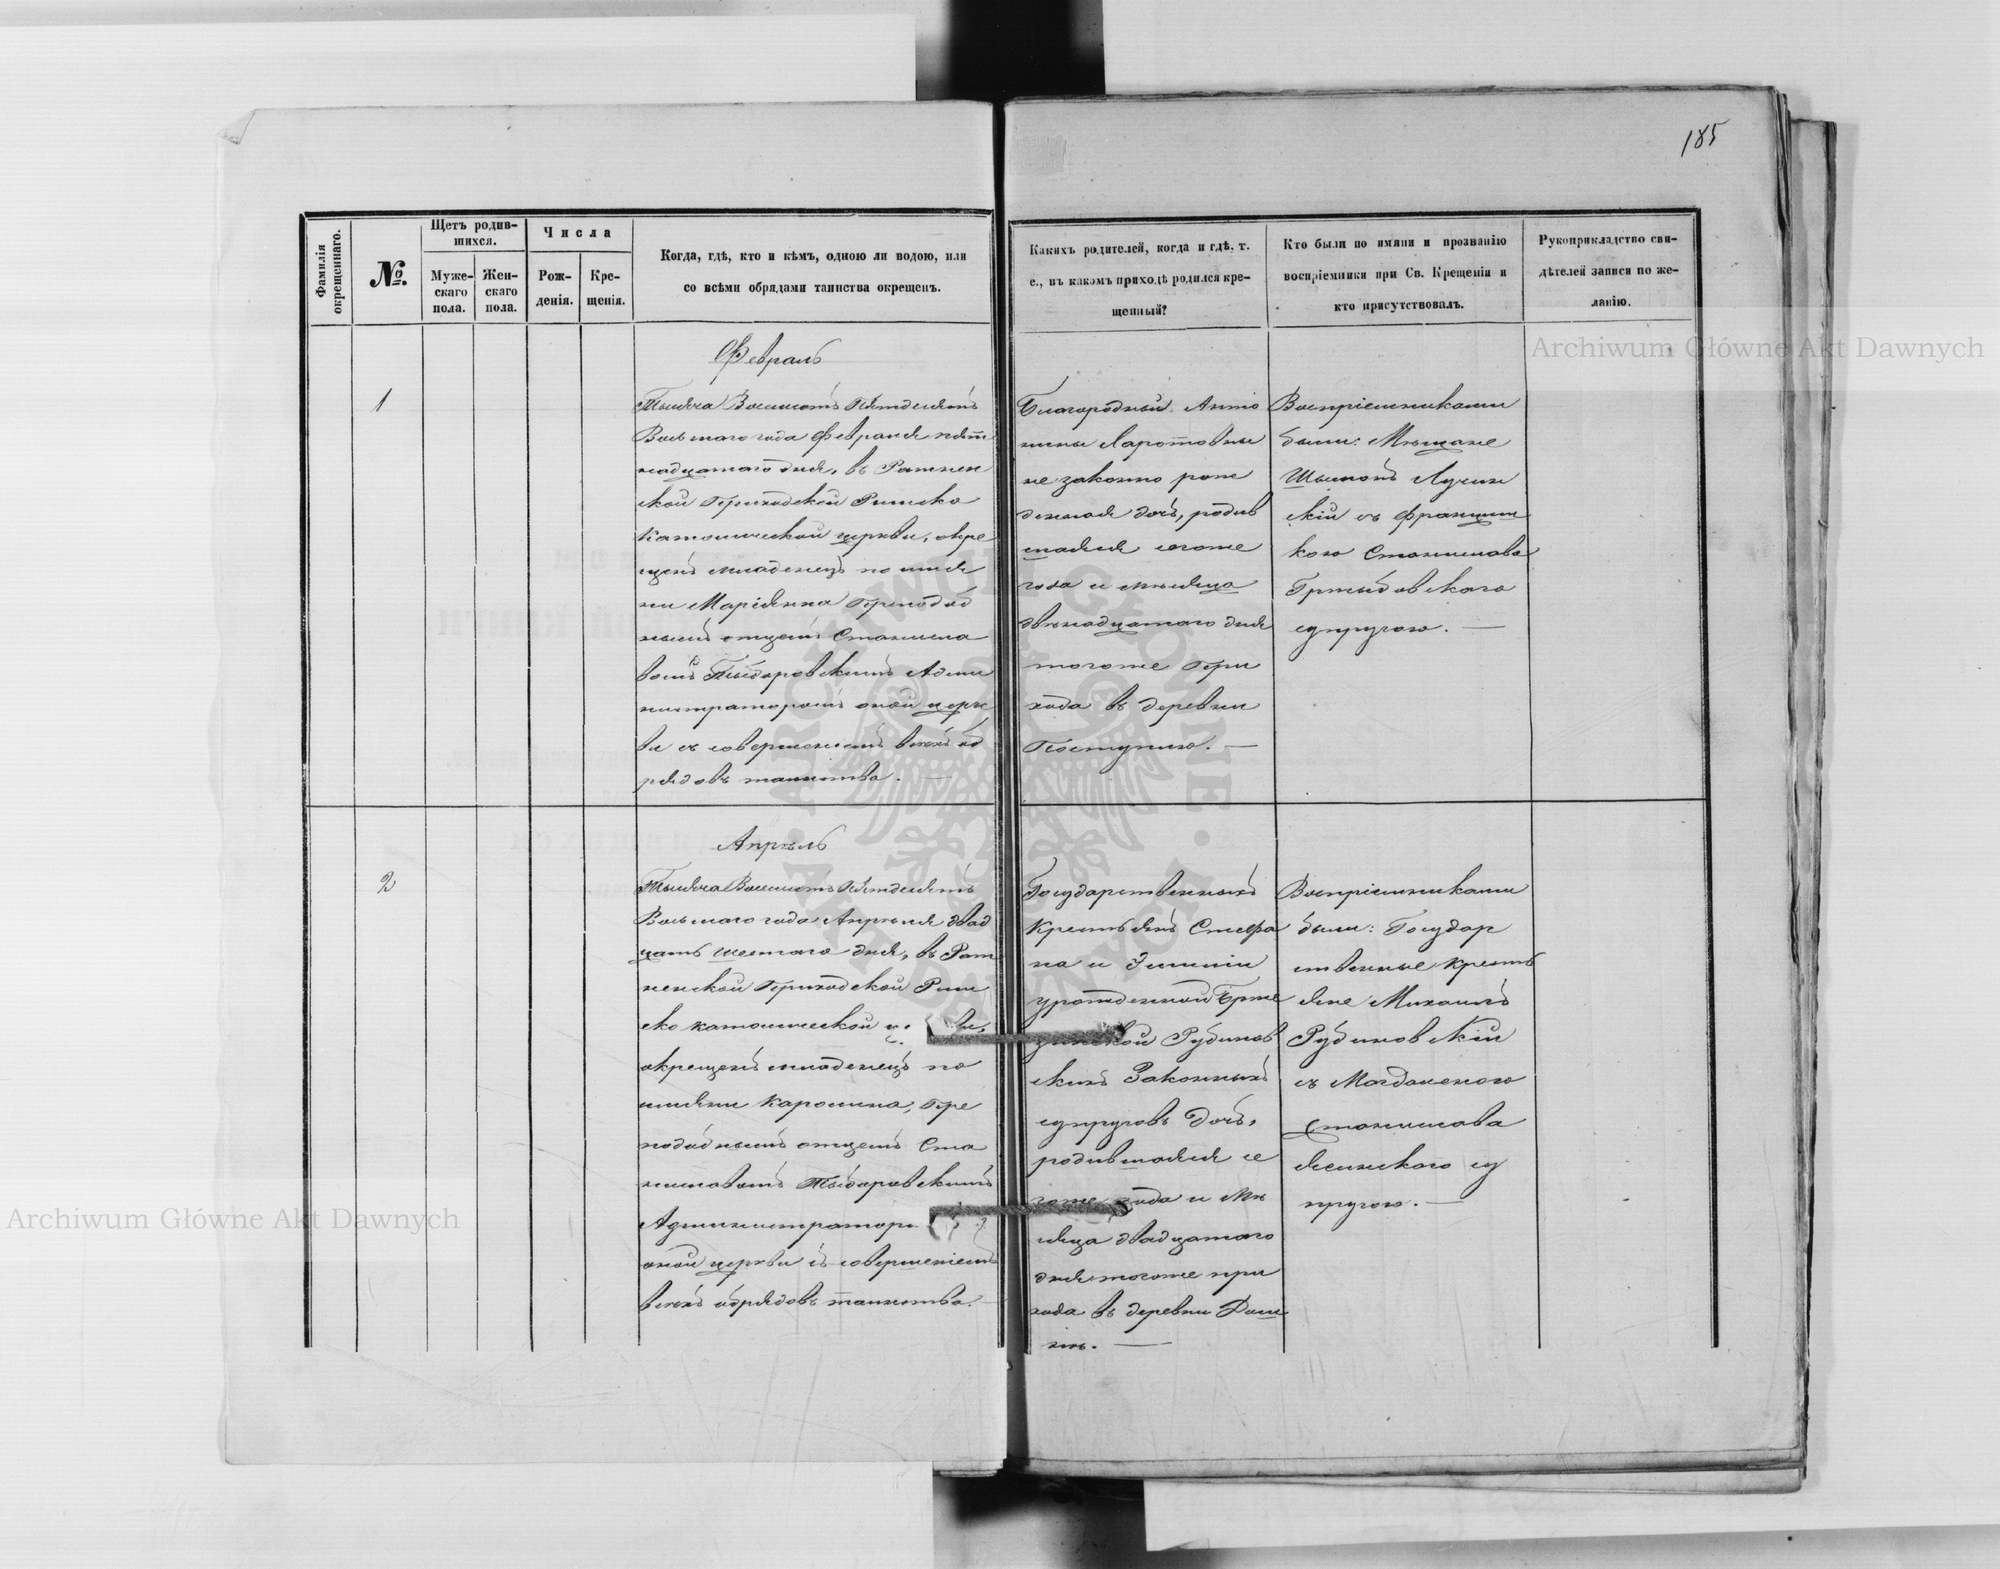 185
Фамилія окрещеннаго.
№.
Щетъ родив-
шихся.
Муже-
скаго
пола.
Жен-
скаго
пола.
Числа
Рож-
денія.
Кре-
щенія.
Когда, гдѣ, кто и кѣмъ, одною ли водою, или
со всѣми обрядами таинства окрещенъ.
Какихъ родителей, когда и гдѣ, т.
е., въ какомъ приходѣ родился кре-
щенный?
Кто были по имяни и прозванію
воспріемники при Св. Крещеніи и
кто присутствовалъ.
Рукоприкладство сви-
дѣтелей записи по же-
ланію.
Февраль
1
Тысяча Восемсотъ Пятдесятъ
Восьмаго года Февраля пят
надцатаго дня, въ Ратнен
ской Приходской Римско
Католической церкви, окре
щенъ младенецъ по имя
ни Маріянна Преподоб
нымъ отцемъ Станисла
вомъ Адми
нистраторомъ оной церк
ви съ совершеніемъ всѣхъ об
рядовъ таинства.
Благородной Анто
нины
не законно рож
денная дочь, родив
шаяся тогоже
года и мѣсяца
двѣнадцатаго дня
тогоже При
хода въ деревни
Воспріемниками
были: Мѣщане
Шымонъ Лучин
скій съ Францишкою Станислава
Гржыбовскаго
супругою.
Апрѣль
2
Тысяча Восемсотъ Пятдесятъ
Восьмаго года Апрѣля двад
цать шестаго дня, въ Рат
ненской Приходской Рим
ско католической
окрещенъ младенецъ по
имяни Каролина, Пре
подобнымъ отцемъ Ста
ниславомъ
Администратор
оной церкви съ совершеніемъ
всѣхъ обрядовъ таинства.
Государственныхъ
Крестьянъ Стефа
на и Эмиліи
урожденной
Рудиков
скихъ Законныхъ
супруговъ Дочь,
родившаяся се
гоже года и мѣ
сяца двадцатаго
дня тогоже при
хода въ деревни
Воспріемниками
были: Государ
ственные кресть
яне Михаилъ
Рудиковскій
съ Магдаленою
Станислава
Ясинскаго су
пругою.
Archiwum Główne Akt Dawnych
Archiwum Główne Akt Dawnych